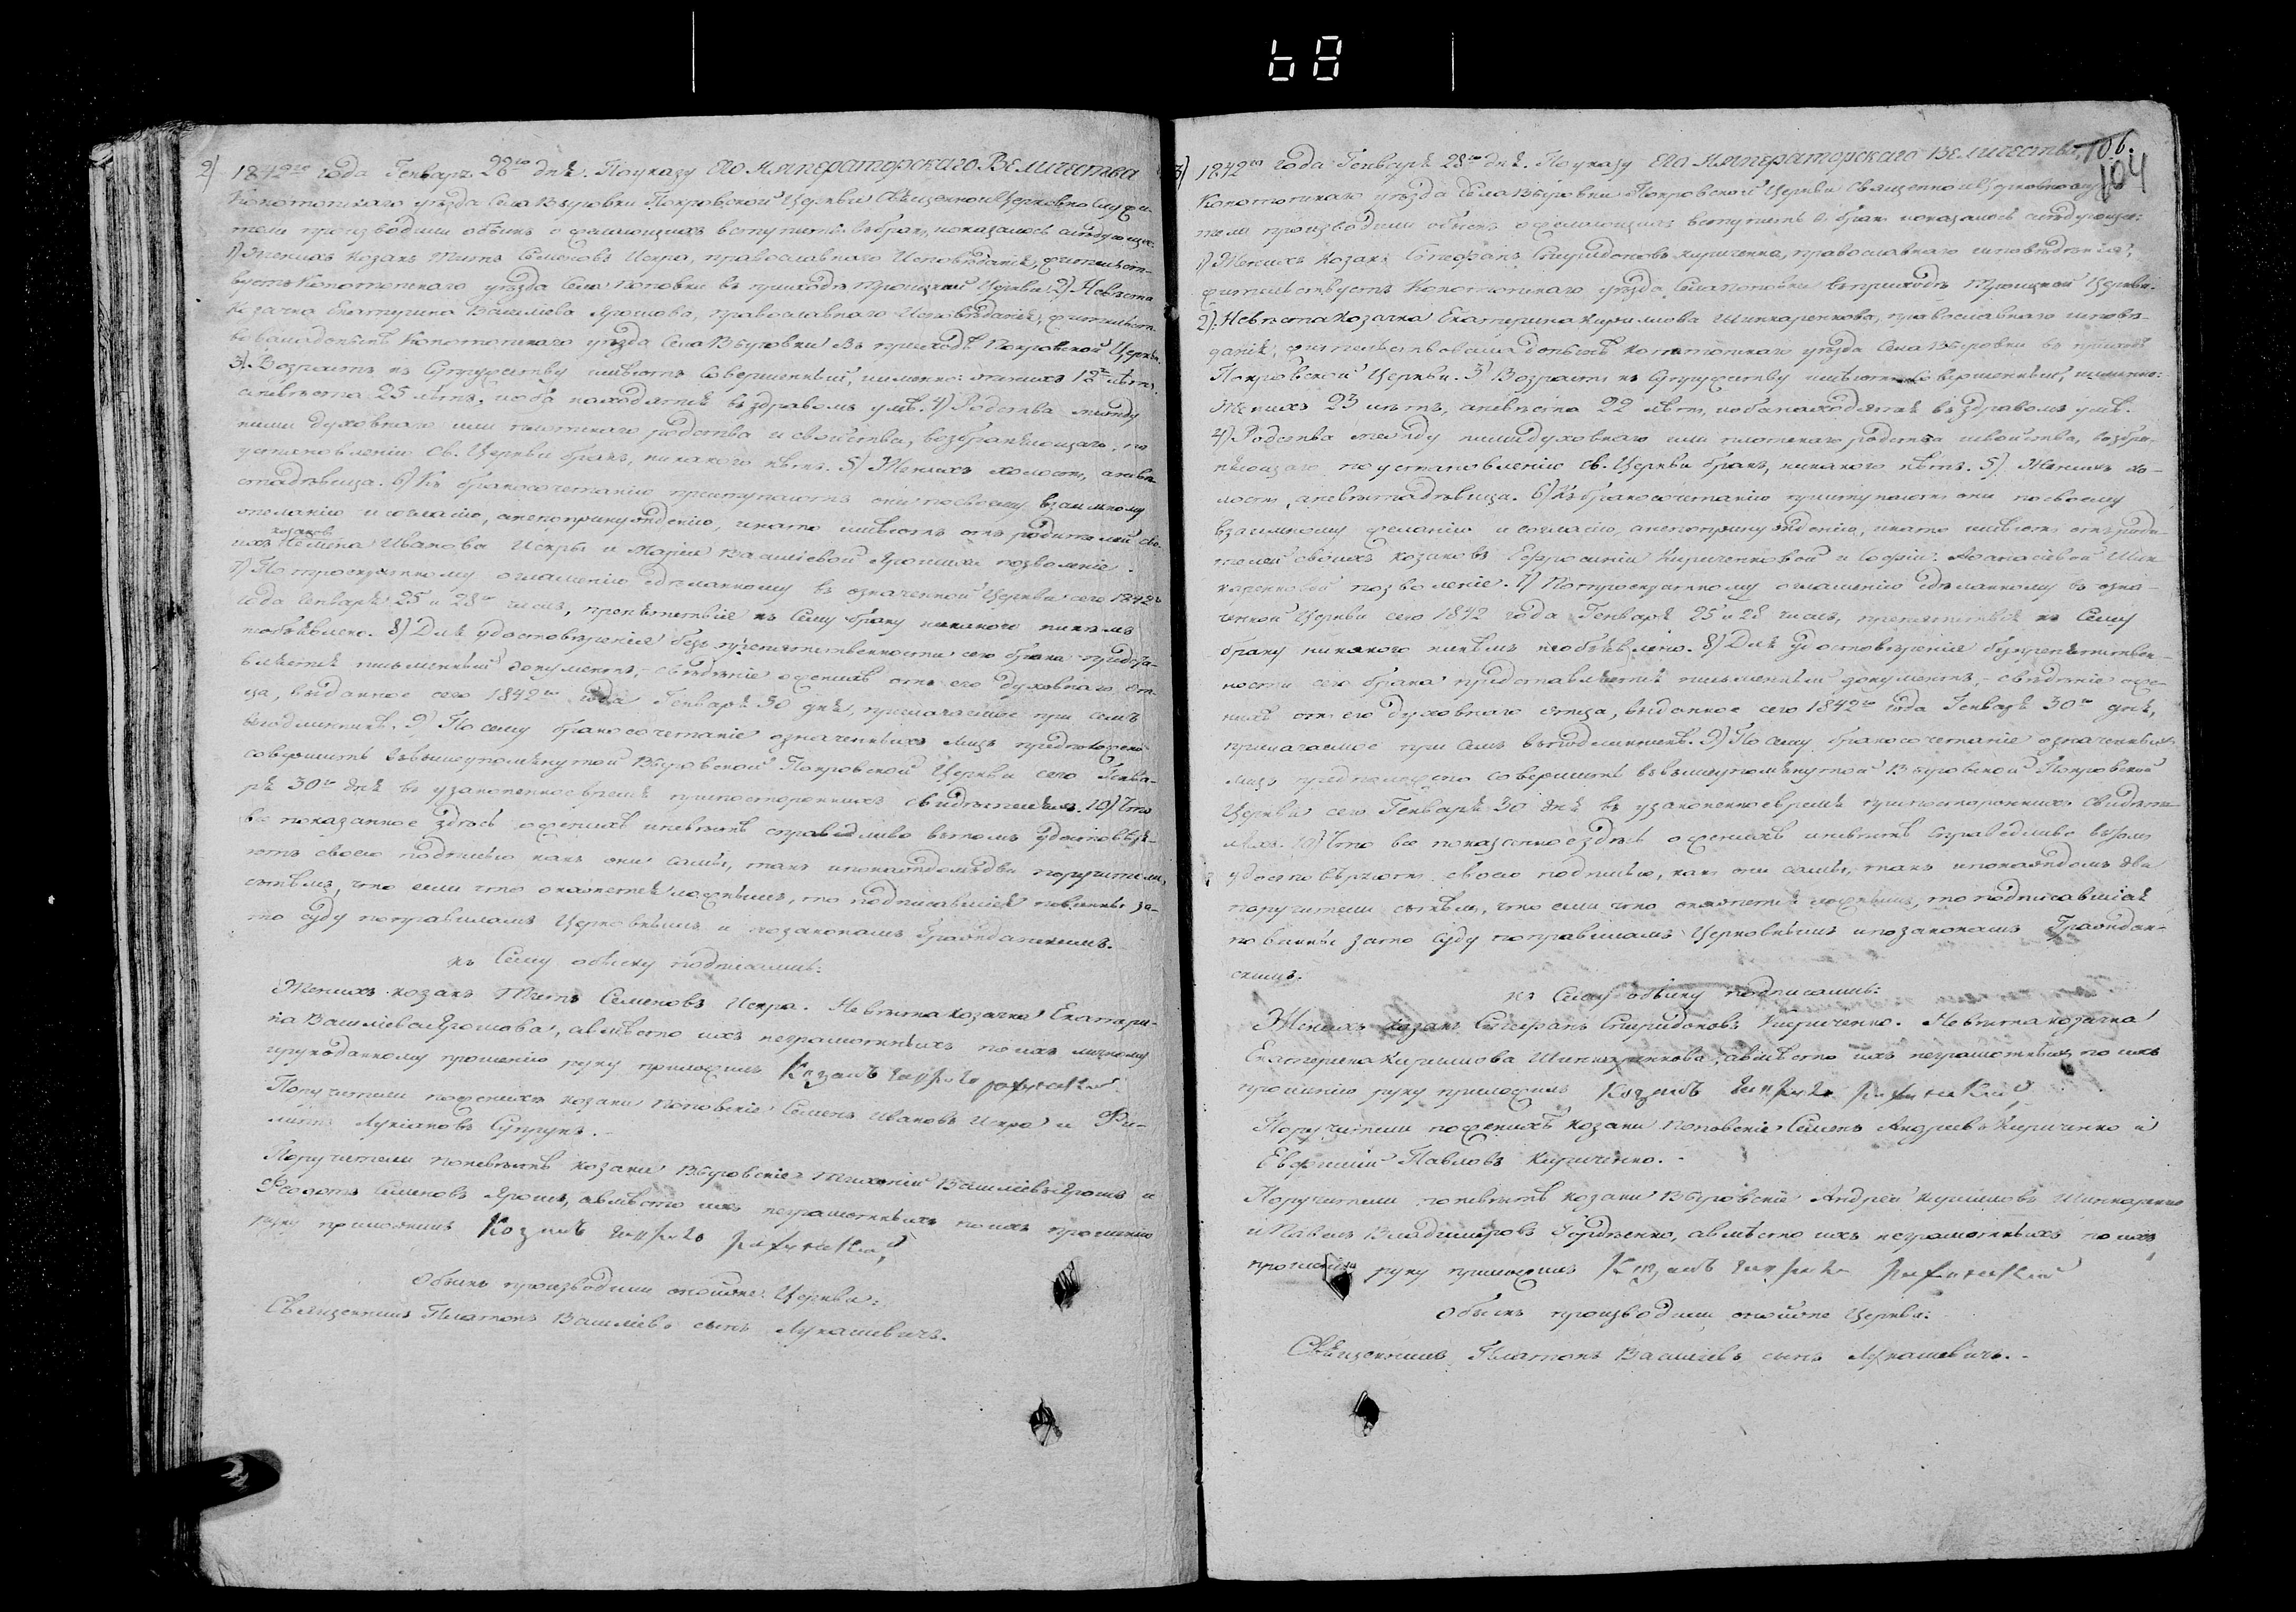 68
2) 1842го года Генваря 28го дня. По указу Его Императорскаго Величества
Конотопскаго уѣзда села Выровки Покровской Церкви Священно и Церковно служи-
тели производили обыскъ о желающихъ вступить въ бракъ, и оказалось слѣдующее:
1) Женихъ козакъ Титъ Семеновъ Искра, православнаго Исповѣданія, жительст-
вуетъ Конотопскаго уѣзда Села Поповки въ приходѣ Троицкой Церкви. 2) Невѣста
Козачка Екатерина Василіева Ярошова, православнаго Исповѣданія, жительст-
вовала донынѣ Конотопскаго уѣзда Села Выровки въ приходѣ Покровской Церкви.
3) Возрастъ къ Супружеству имѣютъ Совершенный, именно: женихъ лѣтъ,
а невѣста 25 лѣтъ, и оба находятся въ здравомъ умѣ. 4) Родства между
ними духовнаго или плотскаго родства и свойства, возбраняющаго, по
установленію Св. Церкви бракъ, никакого нѣтъ. 5) Женихъ холостъ, а невѣ-
ста дѣвица. 6) Къ бракосочетанію приступаютъ они по своему взаимному
желанію и согласію, а не по принужденію, и на то имѣютъ отъ родителей сво-
козаковъ
ихъ Семена Иванова Искры и Маріи Василіевой Ярошихи позволеніе.
7) По троекратному оглашенію сдѣланному въ означенной Церкви сего 1842го
года Генваря 25 и 28го числъ, препятствія къ Сему браку никакого никѣмъ
не объявлено. 8) Для удостовѣренія безпрепятственности сего брака предста-
вляется письменный документъ, - свѣдѣніе о женихѣ отъ его духовнаго от-
ца, выданное сего 1842го года Генваря 30 дня, прилагаемое при семъ
въ подлинникѣ. 9) По сему бракосочетаніе означенныхъ лицъ предположено
совершить въ вышеупомянутой Выровской Покровской Церкви сего Генва-
ря 30го дня въ узаконенное время при постороннихъ свидѣтеляхъ. 10) Что
все показанное здѣсь о женихѣ и невѣстѣ справедливо въ томъ удостовѣря-
ютъ своею подписью какъ они сами, такъ и по каждомъ два поручители,
съ тѣмъ, что если что окажется ложнымъ, то подписавшіеся повинны за-
то суду по правиламъ Церковнымъ и по законамъ Гражданскимъ.
къ Сему обыску подписались:
Женихъ козакъ Титъ Семеновъ Искра. Невѣста козачка Екатери-
на Василіева Ярошова, а вмѣсто ихъ неграмотныхъ по ихъ личному
и рукоданному прошенію руку приложилъ Козакъ
Поручители по женихѣ козаки Поповскіе Семенъ Ивановъ Искра и Фи-
липъ Лукіановъ Супрунъ.
Поручители по невѣстѣ козаки Выровскіе Василіевъ Ярошъ и
Федотъ Семеновъ Ярошъ, а вмѣсто ихъ неграмотныхъ по ихъ прошенію
руку приложилъ Козакъ
Обыскъ производили оной же Церкви:
Священникъ Платонъ Василіевъ сынъ Лукашевичъ.
106.
104
3) 1842го года Генваря 28го дня. По указу Его Императорскаго Величества,
Конотопскаго уѣзда села Выровки Покровской Церкви Священно и Церковно служи-
тели производили обыскъ о желающихъ вступить въ бракъ и оказалось слѣдующее:
1) Женихъ Козакъ Стефанъ Спиридоновъ Кириченко, православнаго исповѣданія,
жительствуетъ Конотопскаго уѣзда Села Поповки въ приходѣ Троицкой Церкви.
2) Невѣста Козачка Екатерина Кирилова Шинкаренкова, православнаго исповѣ-
данія, жительствовала донынѣ Конотопскаго уѣзда Села Выровки въ приходѣ
Покровской Церкви. 3) Возрастъ къ Супружеству имѣютъ совершенный, именно:
Женихъ 23 лѣтъ, а невѣста 22 лѣтъ, и оба находятся въ здравомъ умѣ.
4) Родства между ними духовнаго или плотскаго родства и свойства, возбра-
няющаго по установленію св. Церкви бракъ, никакого нѣтъ. 5) Женихъ хо-
лостъ, а невѣста дѣвица. 6) Къ бракосочетанію приступаютъ они по своему
взаимному желанію и согласію, а не по принужденію, и на то имѣютъ отъ роди-
телей своихъ козаковъ Ефросиніи Кириченковой и Софіи Афанасіевой Шин-
каренковой позволеніе. 7) По троекратному оглашенію сдѣланному въ озна-
ченной Церкви сего 1842 года Генваря 25 и 28 числъ, препятствія къ Сему
браку никакого никѣмъ не объявлено. 8) Для удостовѣренія безпрепятствен-
ности сего брака представляется письменный документъ, - свѣдѣніе о же-
нихѣ отъ его духовнаго отца, выданное сего 1842го года Генваря 30го дня,
прилагаемое при семъ въ подлинникѣ. 9) По сему бракосочетаніе означенныхъ
лицъ предположено совершить въ вышеупомянутой Выровской Покровской
Церкви сего Генваря 30 дня въ узаконенное время при постороннихъ свидѣте-
ляхъ. 10) Что все показанное здѣсь о женихѣ и невѣстѣ справедливо въ томъ
удостовѣряютъ своею подписью, какъ они сами, такъ и по каждомъ два
поручители съ тѣмъ, что если что окажется ложнымъ, то подписавшіеся
повинны за то суду по правиламъ Церковнымъ и по законамъ Граждан-
скимъ.
къ Сему обыску подписались:
Женихъ козакъ Стефанъ Спиридоновъ Кириченко. Невѣста козачка
Екатерина Кирилова Шинкаренкова, а вмѣсто ихъ неграмотныхъ по ихъ
прошенію руку приложилъ Козакъ
Поручители по женихѣ козаки Поповскіе Семенъ Андреевъ Кириченко и
Евфимій Павловъ Кириченко.
Поручители по невѣстѣ козаки Выровскіе Андрей Кириловъ Шинкаренко
и Павелъ Владимировъ а вмѣсто ихъ неграмотныхъ по ихъ
прошенію руку приложилъ Козакъ
Обыскъ производили оной же Церкви:
Священникъ Платонъ Василіевъ сынъ Лукашевичъ.